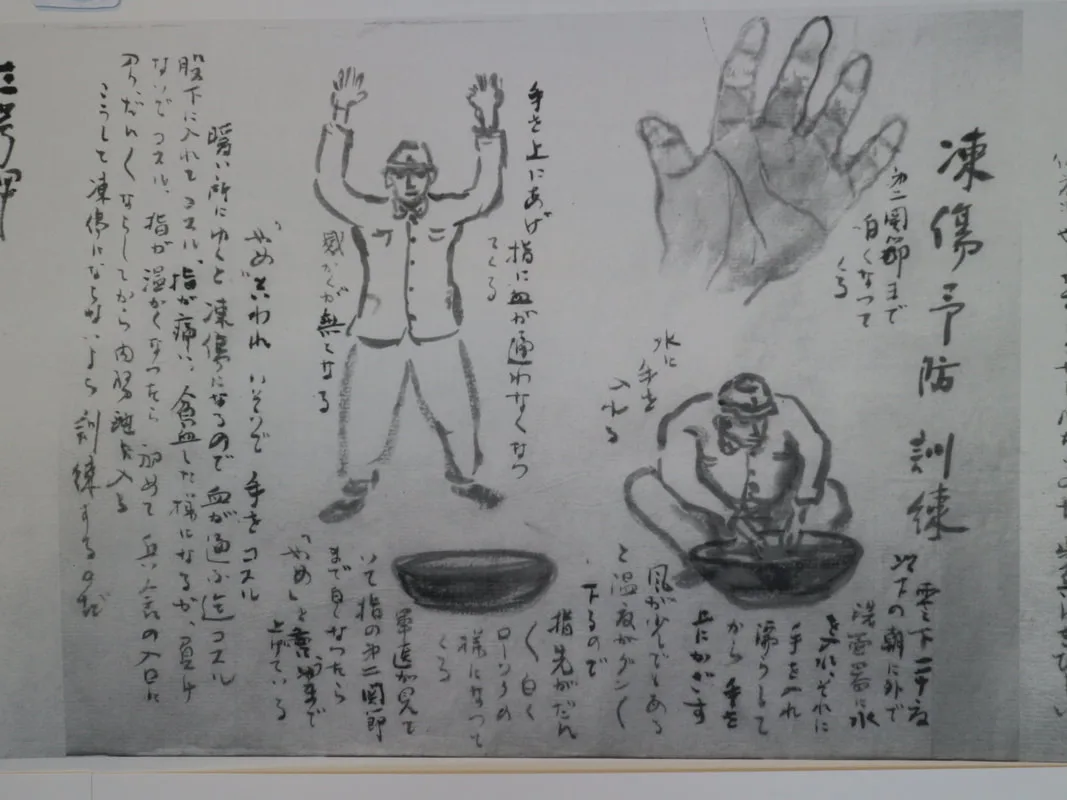 凍傷予防訓練
零下二十度
以下の朝に外で
洗面器に水
を入れ、それに
手を入れ
濡らして
から手を
上にかざす
風が少しでもある
と温度がグン〱
下るので
指先がだん
〱白く
ローソクの
様になって
くる
軍医が見て
いて指の第二関節
まで白くなったら
「やめ」と言うまで
上げている
第二関節まで
白くなって
くる
水に
手を
入れる
手を上にあげ
指に血が通わなくなつ
てくる
感かくが無くなる
"やめ"といわれ いそいで手をコスル
暖い所にゆくと凍傷になるので血が通ふ迄コスル
股下に入れてコスル、指が痛い、貧血した様になるが、負け
ないでコスル、指が温かくなったら初めて兵舎の入口に
入り、だん〱ならしてから内務班に入る
こうして凍傷にならないよう訓練するのだ